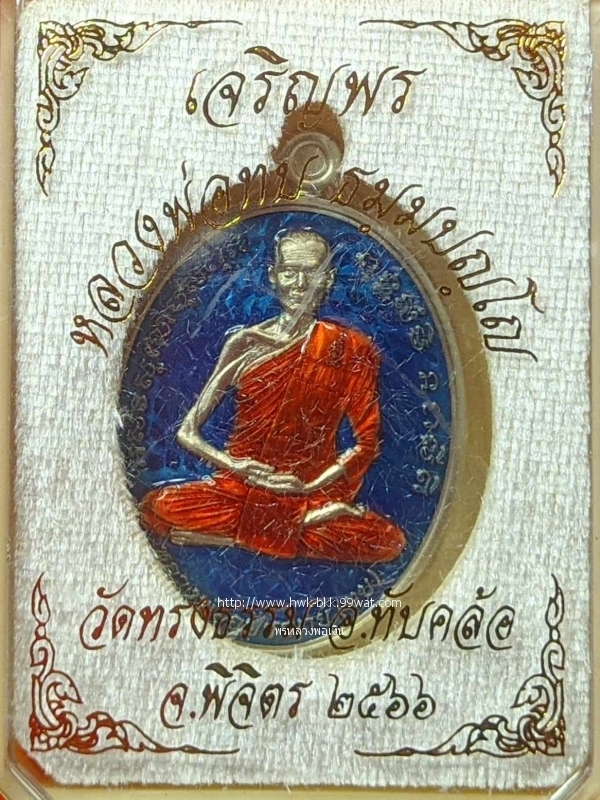 เจริญพร
หลวงพ่อทบ ธมฺมปญฺโญ
http://www.hwk-bkk.99wat.com/
พรหลวงพ่อเงิน
วัดทรงธรรม อ.ทับคล้อ
จ.พิจิตร ๒๕๖๖